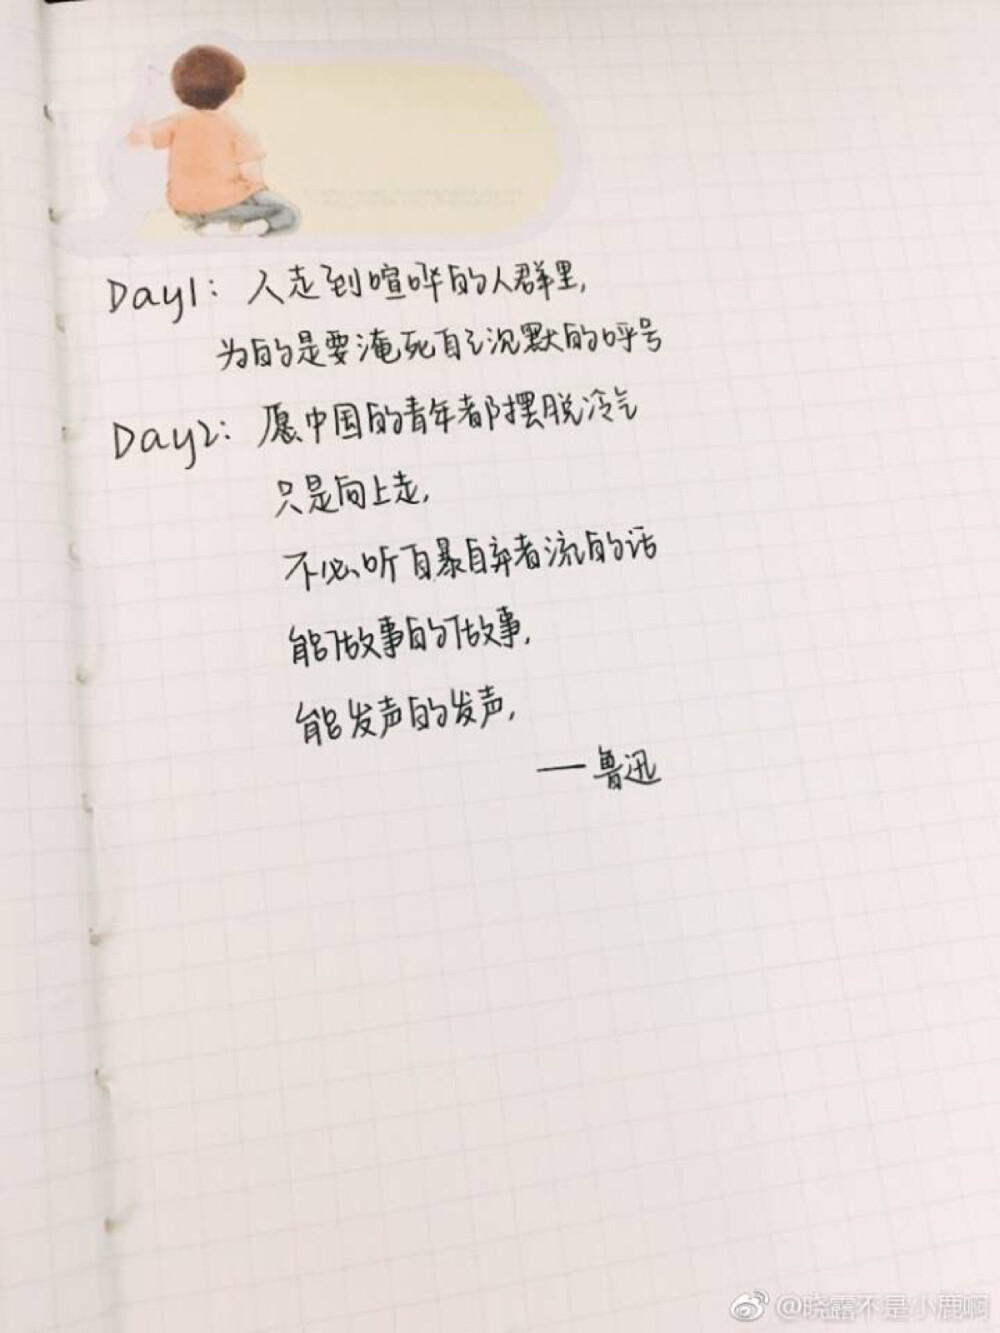 Day1: 人走到喧哗的人群里,
为的是要淹死自己沉默的呼号
Day2: 愿中国的青年都摆脱冷气
只是向上走,
不必听自暴自弃者流的话
能做事的做事,
能发声的发声,
——鲁迅
@晓露不是小鹿啊